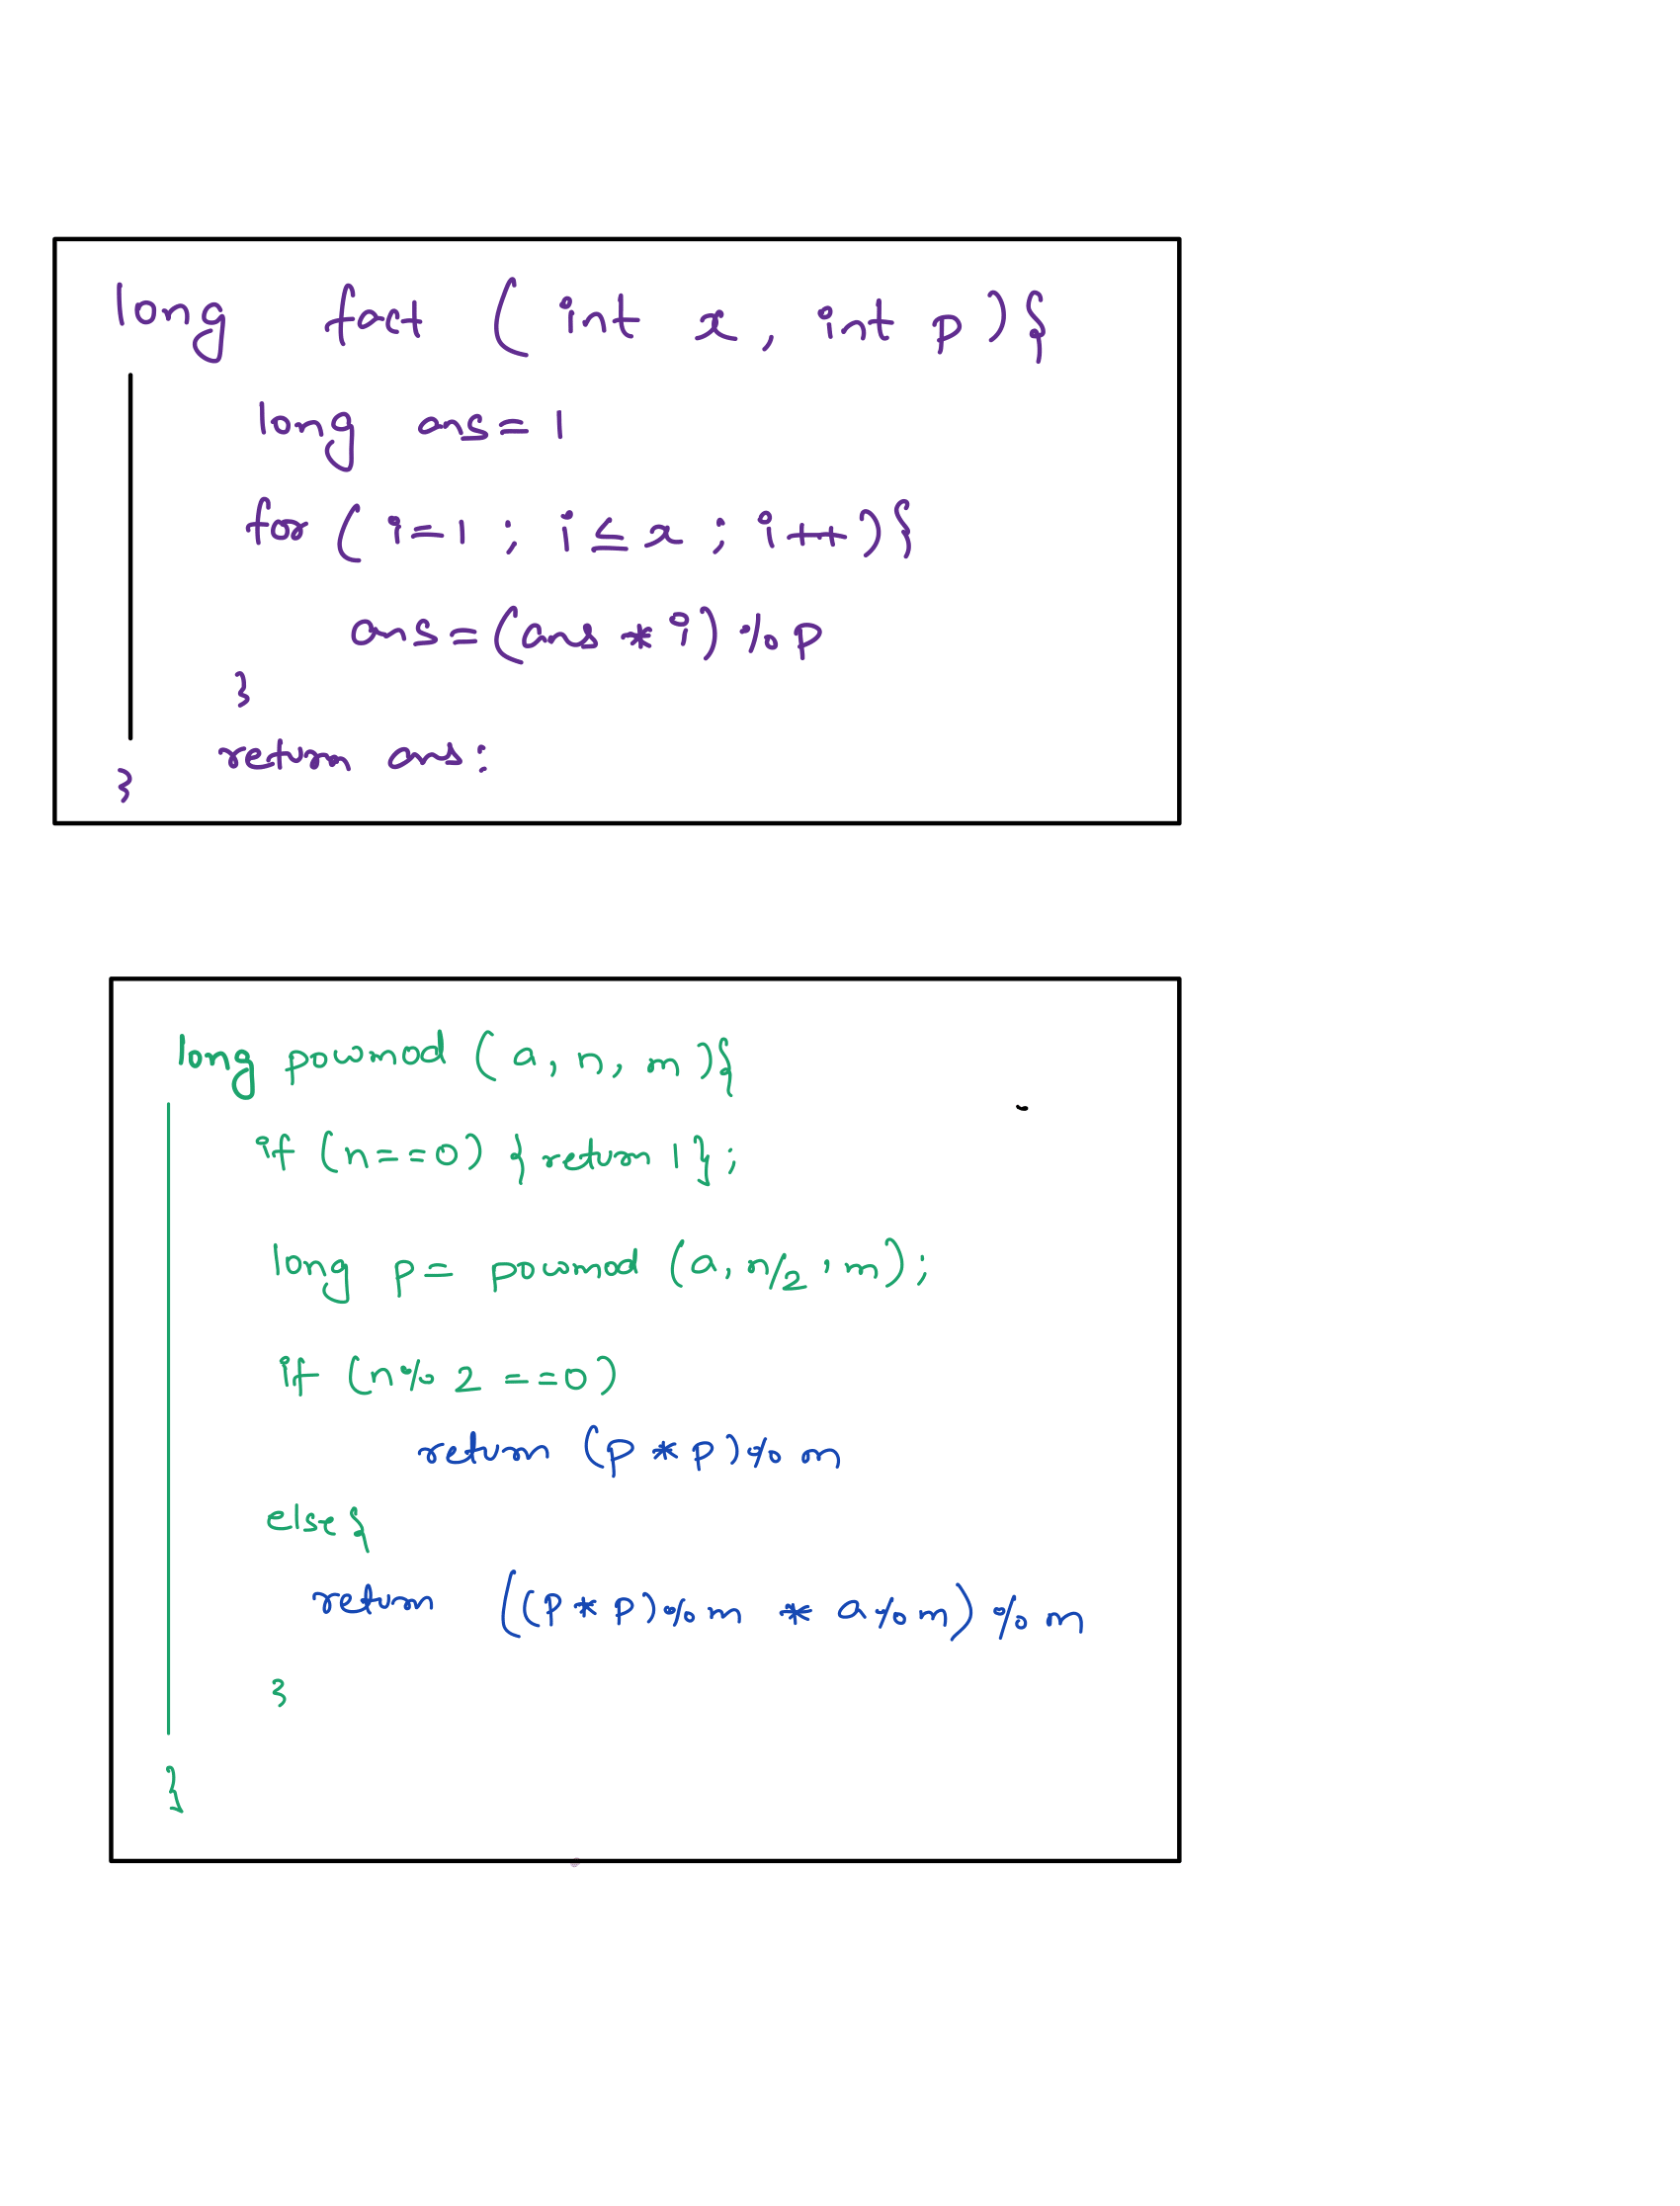 long fact ( int x, int p ){
long ans = 1
for ( i=1 ; i ≤ x ; i++ ){
ans = (ans * i) % p
}
return ans:
}
long powmod ( a, n, m ){
if (n==0) { return 1 } ;
long p = powmod (a, n/2, m);
if (n % 2 ==0)
return (p * p) % m
else {
return ((p * p) % m * a % m) % m
}
}